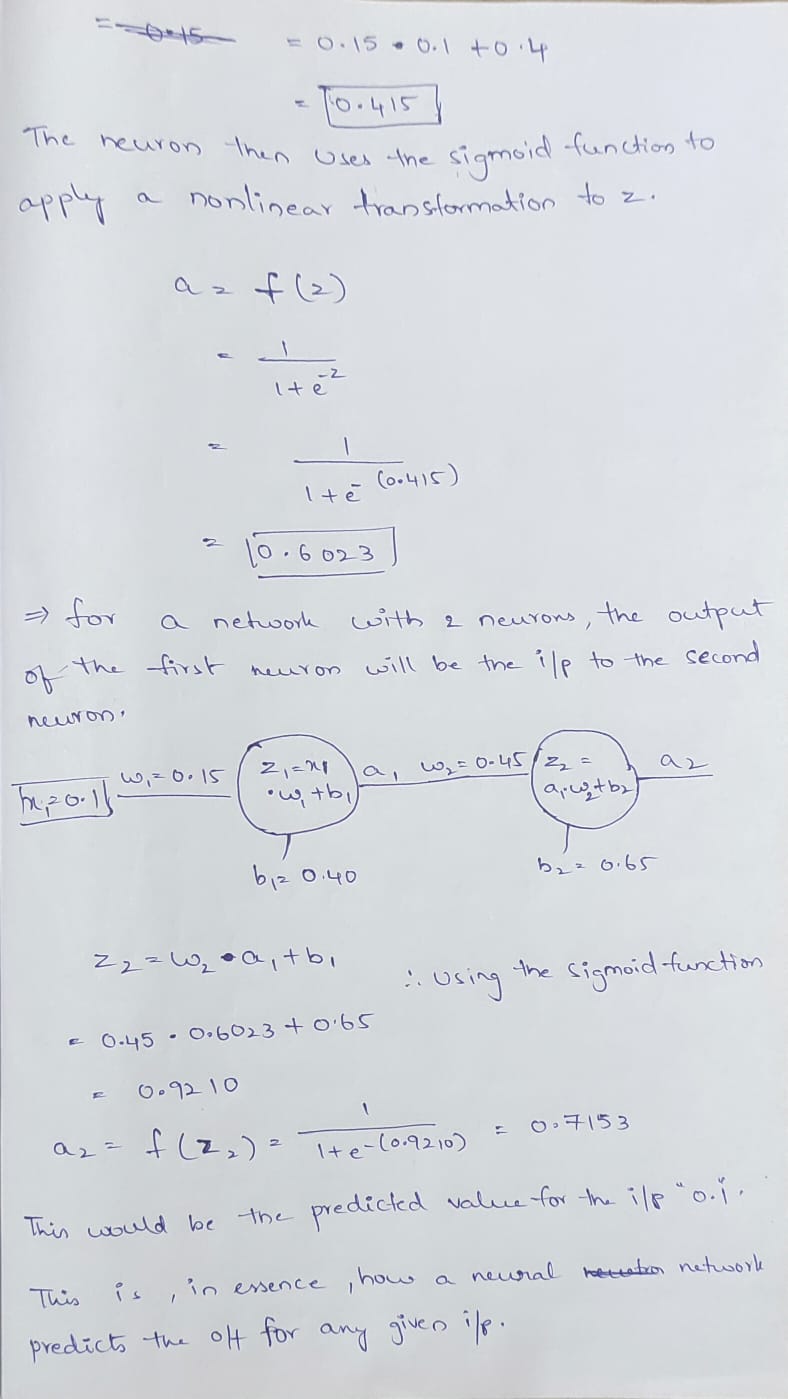 = 0.15 = 0.15 • 0.1 + 0.4
= 0.415
The neuron then uses the sigmoid function to
apply a nonlinear transformation to z.
a = f(z)
= 1
1 + e^-z
= 1
1 + e^-(0.415)
= 0.6023
⇒ for a network with 2 neurons, the output
of the first neuron will be the i/p to the second
neuron.
x₁ = 0.1 w₁ = 0.15 z₁ = x₁ a₁ w₂ = 0.45 z₂ = a₂
• w₁ + b₁ a₁•w₂+b₂
b₁ = 0.40 b₂ = 0.65
z₂ = w₂ • a₁ + b₁ ∴ Using the sigmoid function
= 0.45 • 0.6023 + 0.65
= 0.9210
a₂ = f(z₂) = 1 / 1 + e^-(0.9210) = 0.7153
This would be the predicted value for the i/p "0.1".
This is, in essence, how a neural network
predicts the o/t for any given i/p.